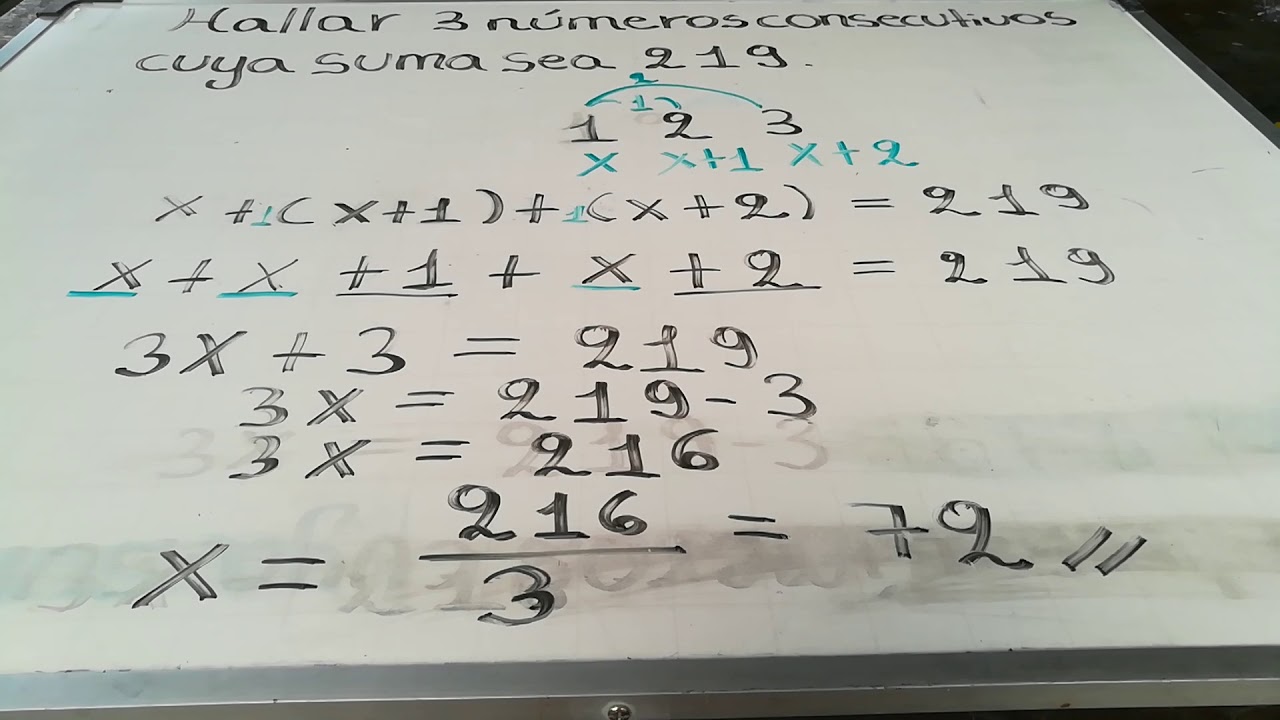 Hallar 3 números consecutivos
cuya suma sea 219.
2
1
1 2 3
x x+1 x+2
x + 1(x+1) + 1(x+2) = 219
x + x + 1 + x + 2 = 219
3x + 3 = 219
3x = 219 - 3
3x = 216
x = 216/3 = 72 //